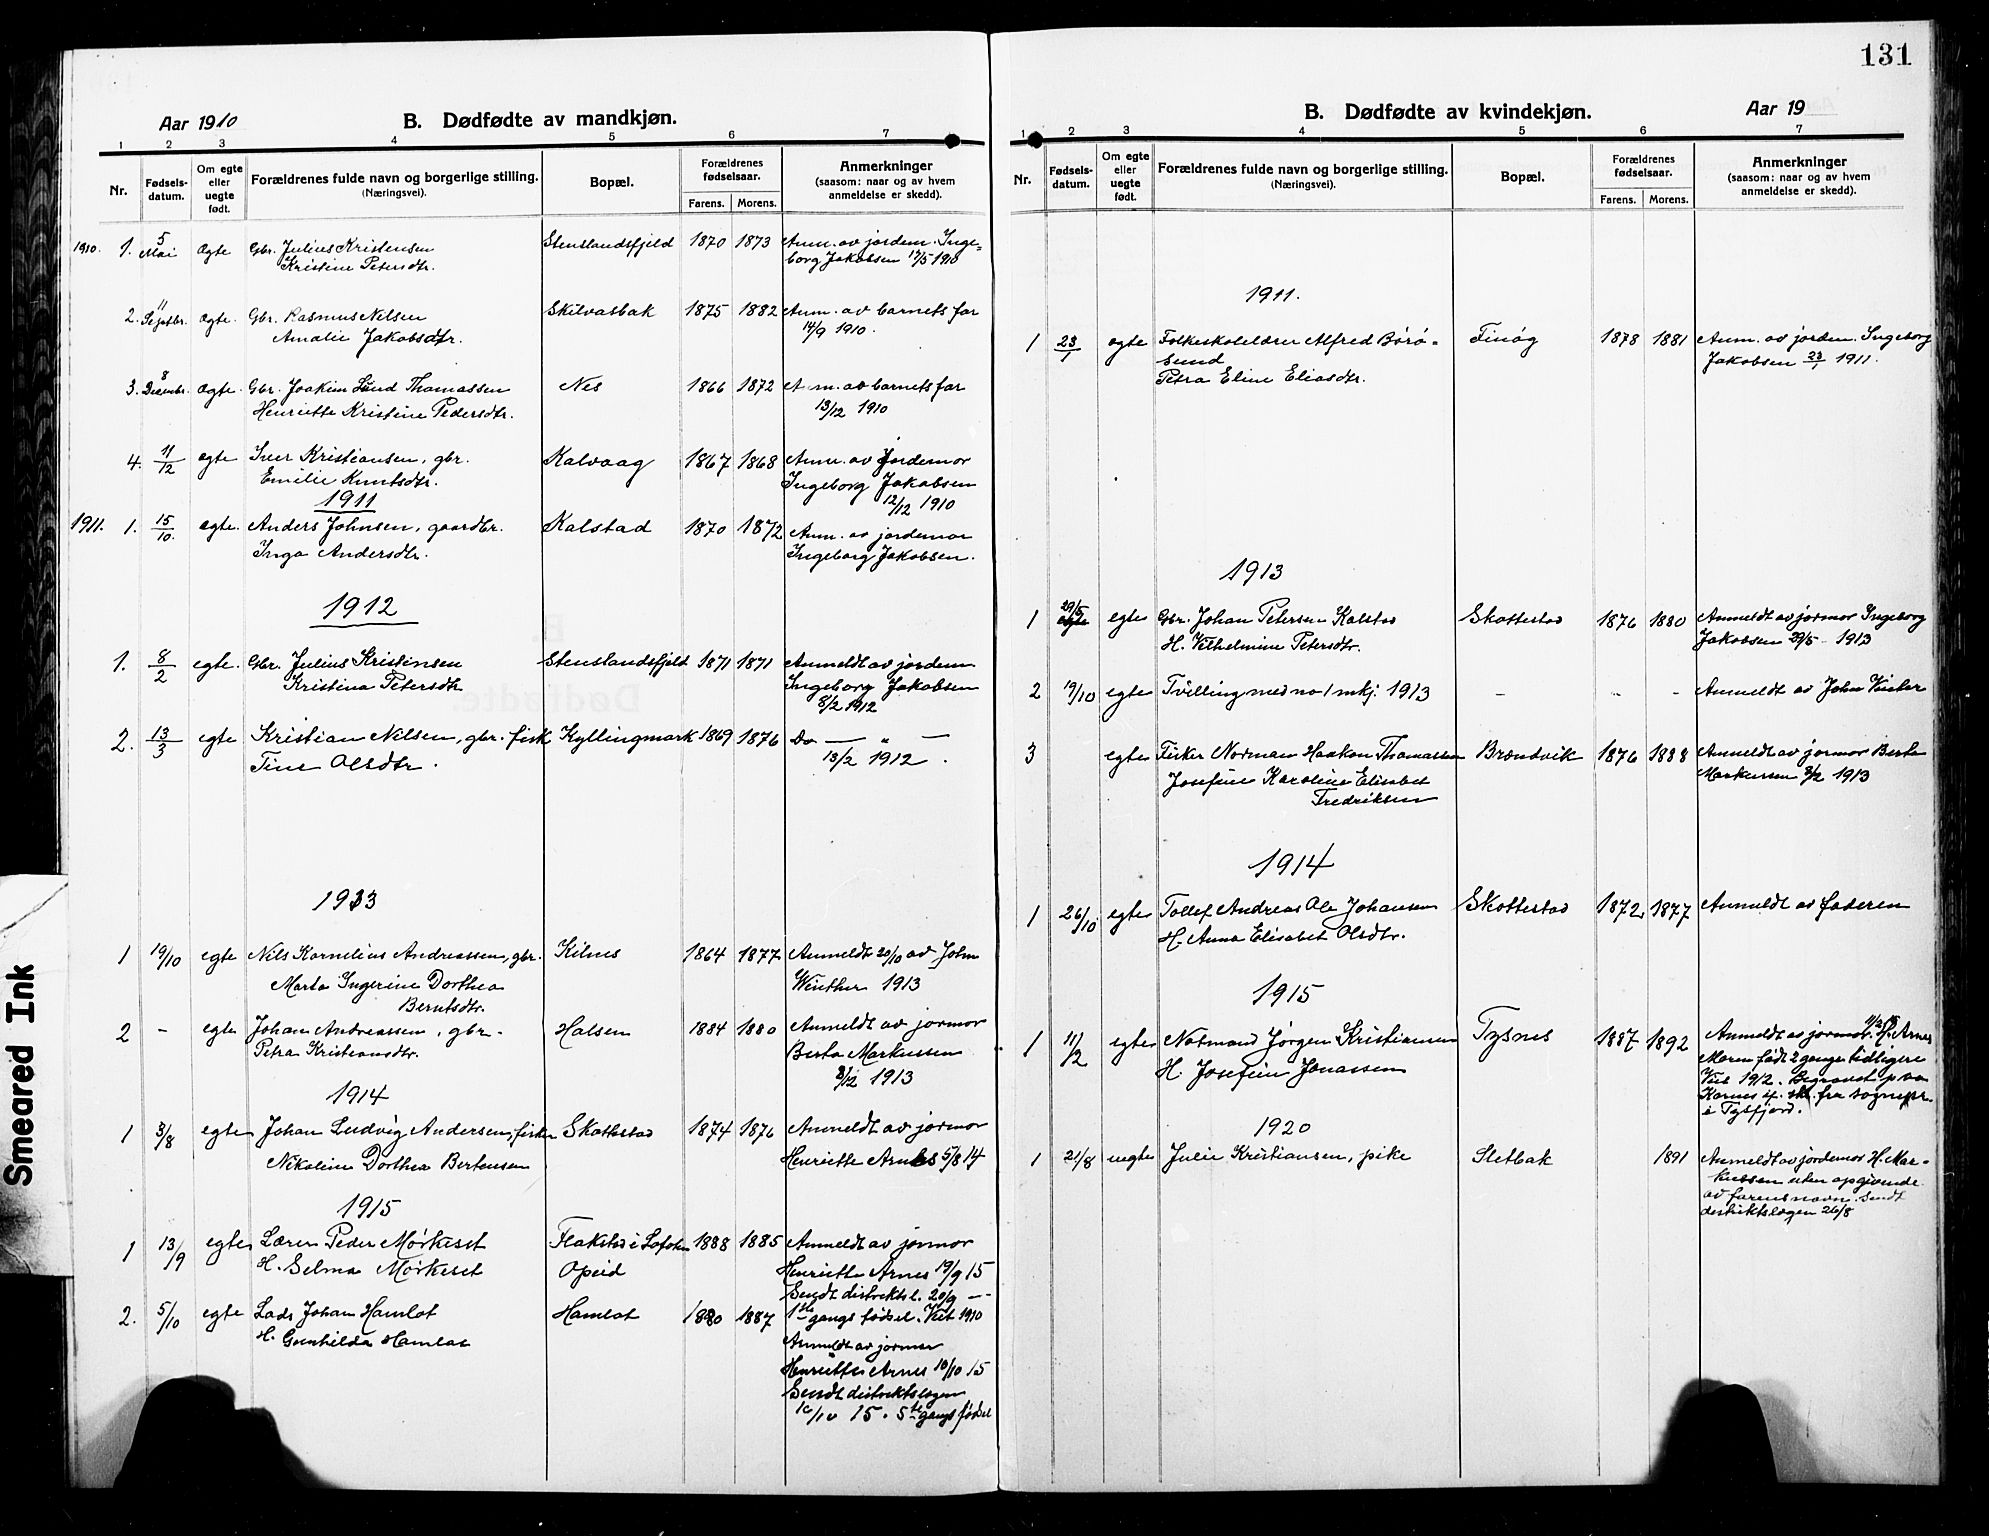 131
Aar 1910
B. Dødfødte av mandkjøn.
1 2 3 4 5 6 7
Nr.
Fødsels-
datum.
Om egte
eller
uegte
født.
Forældrenes fulde navn og borgerlige stilling.
(Næringsvei).
Bopæl.
Forældrenes
fødselsaar.
Farens. Morens.
Anmerkninger
(saasom: naar og av hvem
anmeldelse er skedd).
1910. 1. 5 Mai Ægte Gbr. Julius Kristensen Stenslandsfjeld 1870 1873 Anm. av jordem. Inge-
Kristine Petersdtr. borg Jakobsen 17/5 1910
2. 11 Septbr. Ægte. Gbr. Rasmus Nilsen Skilvasbak 1875 1882 Anm. av barnets far
Amalie Jakobsdtr. 14/9 1910.
3. 8 Decembr. Ægte Gbr. Joakim Lund Thomassen Nes 1866 1872 A m. av barnets far
Henriette Kristine Pedersdtr. 13/12 1910
4. 11/12 egte Iver Kristiansen, gbr. Kalvaag 1867 1868 Anm. av Jordemor
Emilie Knutsdtr. Ingeborg Jakobsen
12/12 1910
1911
1911. 1. 15/10. egte. Anders Johnsen, gaardbr. Kalstad 1870 1872 Anm. av jordemor
Inga Andersdtr. Ingeborg Jakobsen.
1912
1. 8/2 egte. Gbr. Julius Kristensen Stenslandsfjeld 1871 1871 Anmeldt av jordem
Kristina Petersdtr Ingeborg Jakobsen
8/2 1912
2. 13/3 egte Kristian Nilsen, gbr. fisk Kyllingmark 1869 1876 Do — " —
Tine Olsdtr. 13/2 1912.
1913
1 19/10 egte Nils Kornelius Andreassen, gbr. Kilnes 1864 1877 Anmeldt 20/10 av John
Marta Ingerine Dorthea Winther 1913
Berntsdtr.
2 - egte Johan Andreassen, gbr. Halsen 1884 1880 Anmeldt av jormor
Petra Kristiansdtr. Berta Markussen
3/12 1913
1914
1 3/8 egte Johan Ludvig Andersen, fisker Skottestad 1874 1876 Anmeldt av jormor
Nikoline Dorthea Bertensen Henriette Arnes 5/8 14
1915
1 13/9 egte Lærer Peder Mørkeset Flakstad i Lofoten 1888 1885 Anmeldt av jormor
H. Selma Mørkeset Opeid Henriette Arnes 19/9 15
Sendt distriktsl. 20/9 —
2. 5/10 egte Lads Johan Hamlot Hamlot 1880 1887 1ste gangs fødsel. Viet 1910
H. Gunhilda Hamlot Anmeldt av jormor
Henriette Arnes 10/10 15
Sendt distriktslægen
10/10 15. 5te gangs fødsel
B. Dødfødte av kvindekjøn.
Aar 19
1 2 3 4 5 6 7
Nr.
Fødsels-
datum.
Om egte
eller
uegte
født.
Forældrenes fulde navn og borgerlige stilling.
(Næringsvei).
Bopæl.
Forældrenes
fødselsaar.
Farens. Morens.
Anmerkninger
(saasom: naar og av hvem
anmeldelse er skedd).
1911.
1 23/1 egte Folkeskolelærer Alfred Børø- Finøg 1878 1881 Anm. av jordem. Ingeborg
sund Jakobsen 23/1 1911.
Petra Eline Eliasdtr.
1913
1 29/5 egte Gbr. Johan Petersen Kalstad Skottestad 1876 1880 Anmeldt av jormor Ingeborg
H. Vilhelmine Petersdtr. Jakobsen 29/5 1913
2 19/10 egte Tvilling med no 1 mkj. 1913 - - - Anmeldt av John Vinter
3 egte Fisker Norman Haakon Thomassen Brændvik 1876 1888 Anmeldt av jormor Berta
Josefine Karoline Elisabet Markussen 3/12 1913
Fredriksen
1914
1 26/10 egte Tollef Andreas Ole Johansen Skottestad 1872 1877 Anmeldt av faderen
H. Anna Elisabet Olsdtr.
1915
1 11/2 egte Notmand Jørgen Kristiansen Tysnes 1887 1892 Anmeldt av jormor H. Arnes
H. Josefine Jonassen Moren født 2 gange tidligere
Viet 1912. Begravet p aa
Kornes if. skr. fra sognepr.
i Tysfjord.
1920
1 21/8 uegte Julie Kristiansen, pike Sletbak 1891 Anmeldt av jordemor H. Mar-
kussen uten opgivende
av farens navn. Sendt
distriktslægen 26/8
Smeared Ink